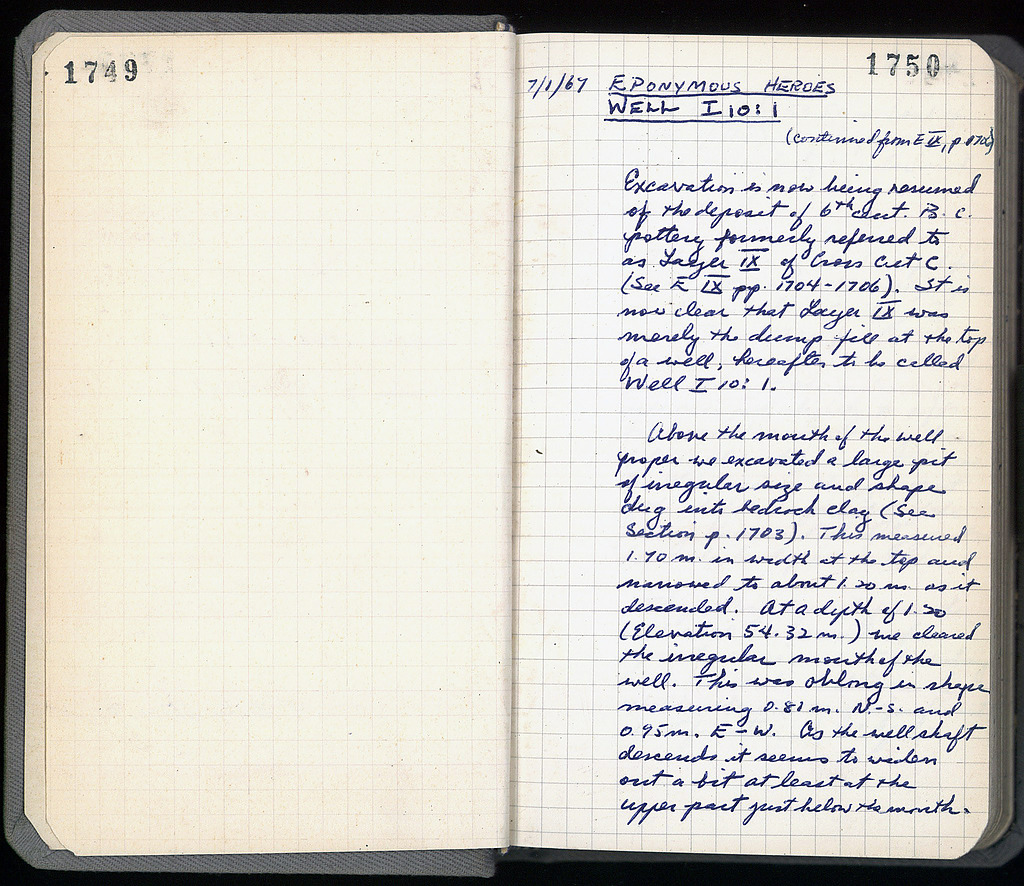 1749
1750
7/1/67 EPONYMOUS HEROES
WELL I 10:1
(continued from E IX, p. 1706)
Excavation is now being resumed
of the deposit of 6th cent. B.C.
pottery formerly referred to
as Layer IX of Cross Cut C.
(See E IX pp. 1704-1706). It is
now clear that Layer IX was
merely the dump fill at the top
of a well, hereafter to be called
Well I 10:1.
Above the mouth of the well
proper we excavated a large pit
of irregular size and shape
dug into bedrock clay (See
Section p. 1703). This measured
1.70 m. in width at the top and
narrowed to about 1.20 m. as it
descended. At a depth of 1.20
(Elevation 54.32 m.) we cleared
the irregular mouth of the
well. This was oblong in shape
measuring 0.81 m. N-S. and
0.95 m. E-W. As the well shaft
descends it seems to widen
out a bit at least at the
upper part just below the mouth.